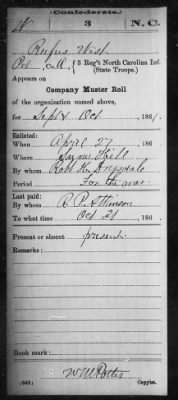 Confederate.
3 N.C.
Rufus West
Co. A. 3 Reg't North Carolina Inf.
(State Troops.)
Appears on
Company Muster Roll
of the organization named above,
for Sept & Oct, 186
Enlisted:
When April 27, 186
Where Hill
By whom Robt H. Drysdale
Period For the war
Last paid:
By whom R. P. Atkinson
To what time Oct 21, 186
Present or absent present
Remarks:
Book mark:
W M Potts
(642) Copyist.